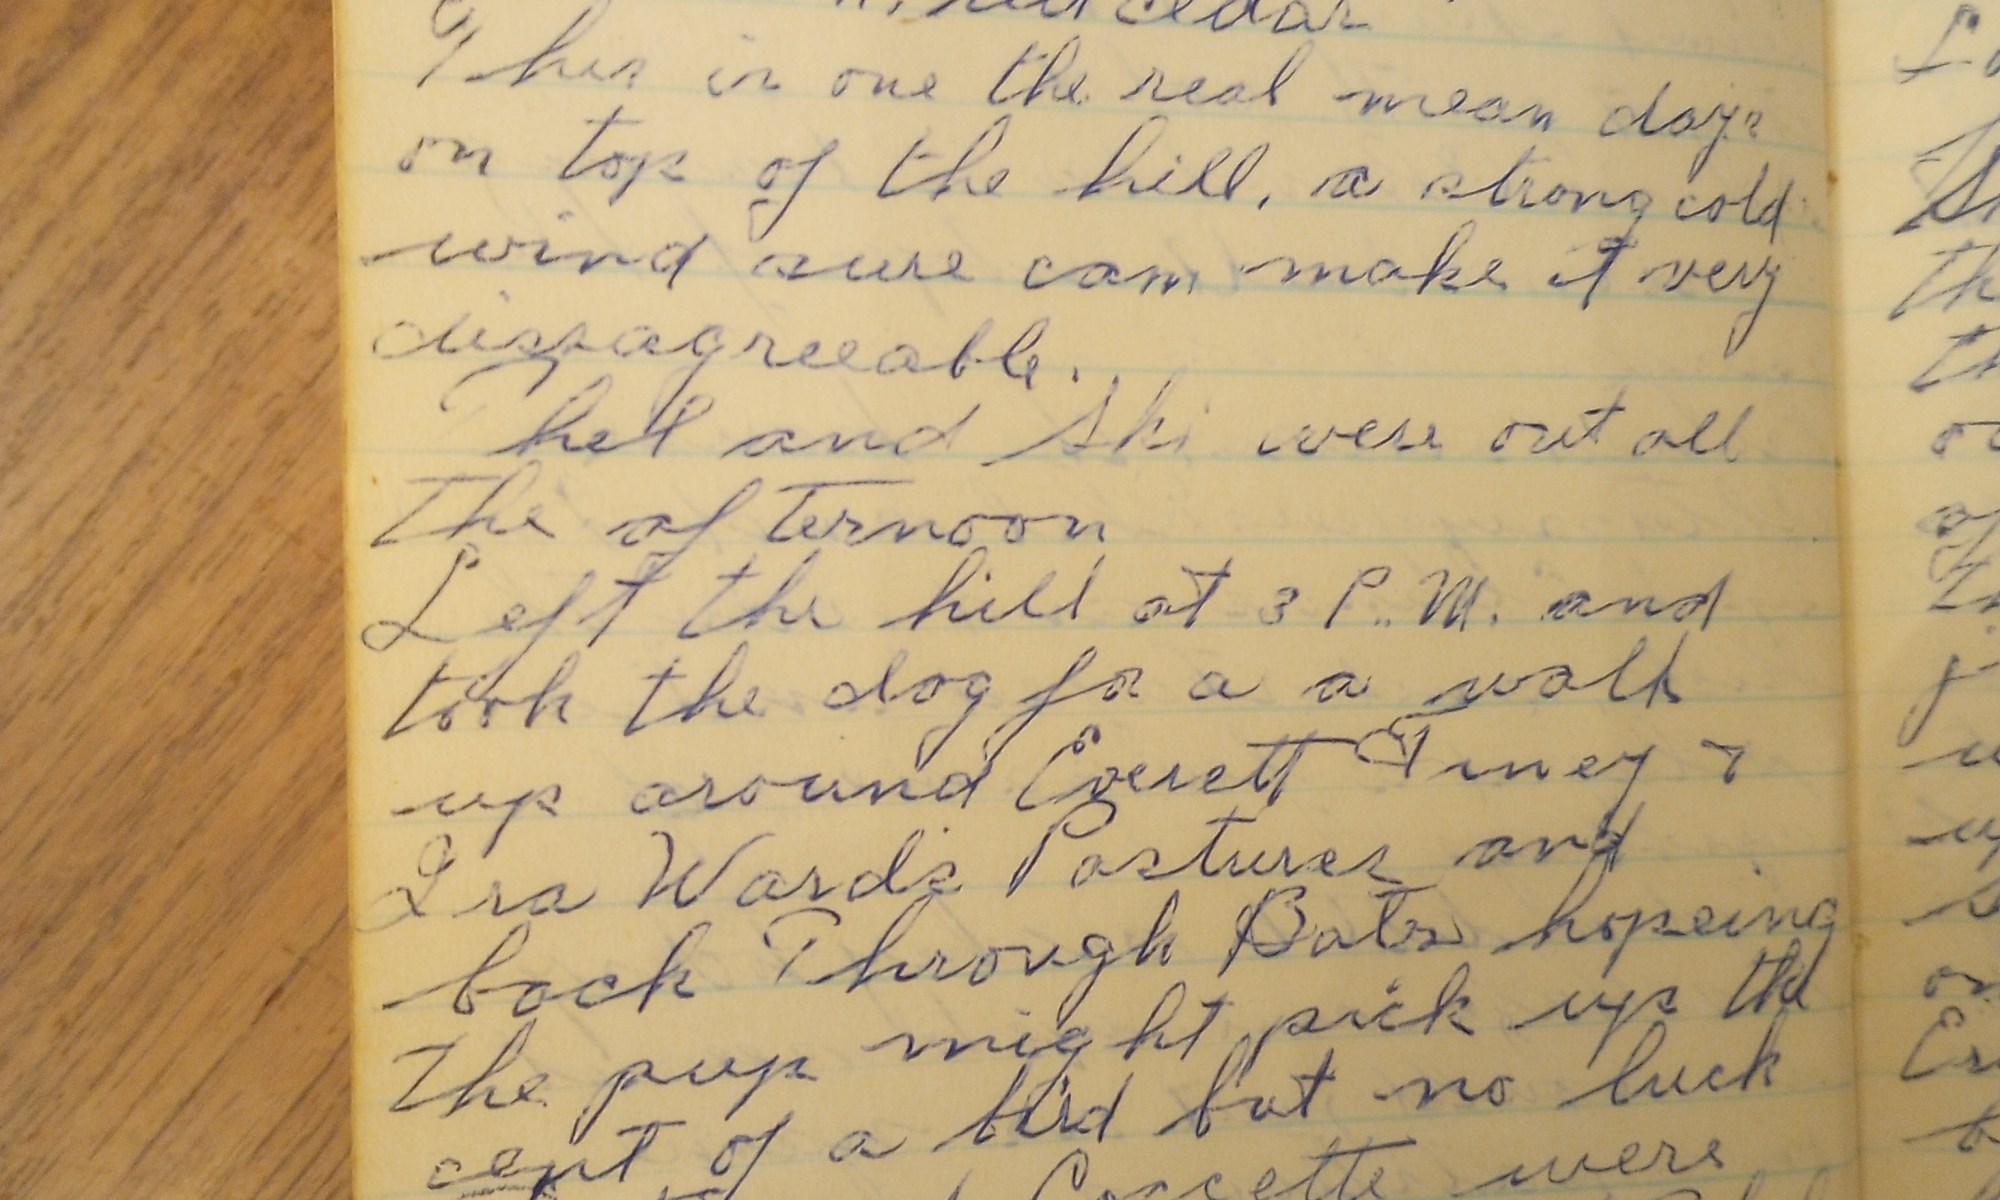 red Cedar
This is one the real mean days
on top of the hill, a strong cold
wind sure can make it very
dissagreeable.
Thel and Ski were out all
the afternoon
Left the hill at 3 P.M. and
took the dog for a a walk
up around Everett Tiney &
Ira Wards Pastures and
back Through Bates hopeing
the pup might pick up the
cent of a bird but no luck
were